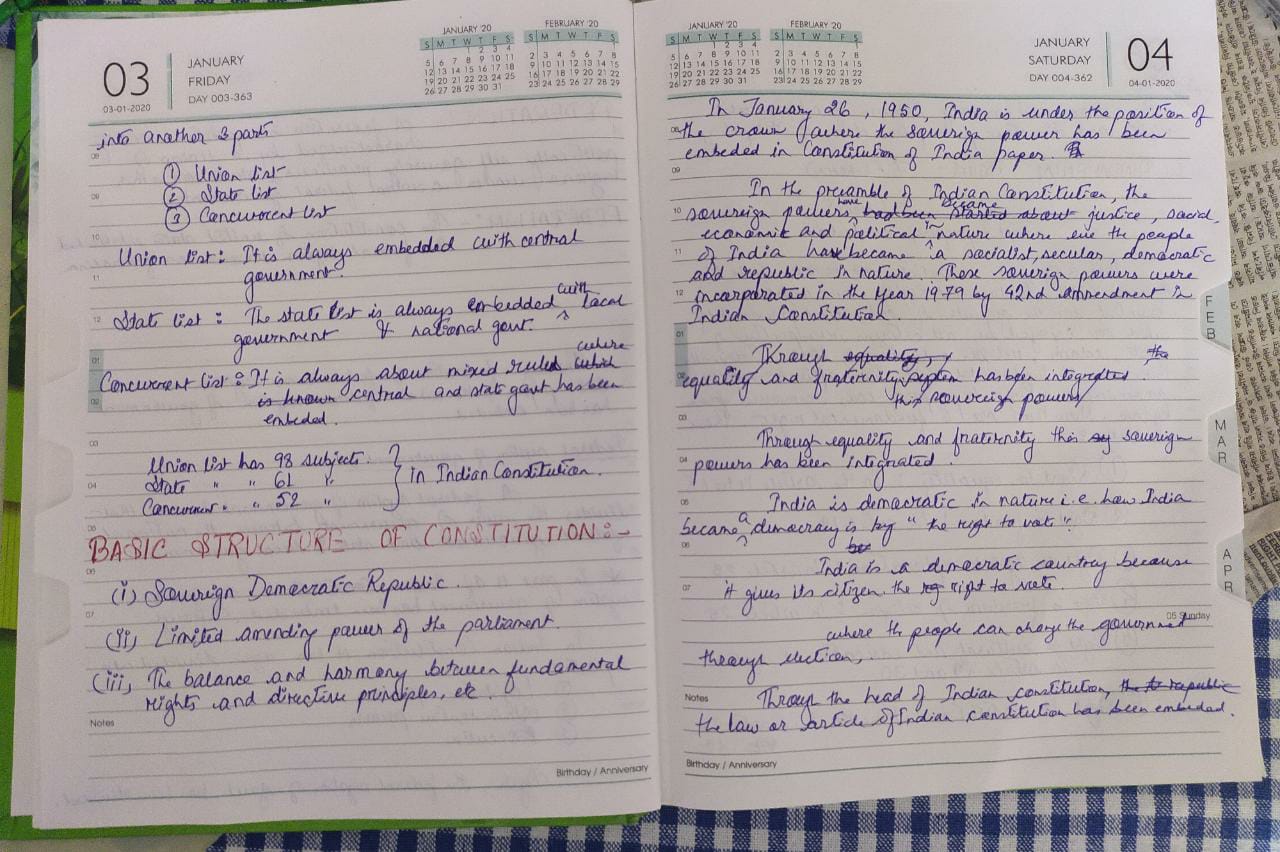 03
03-01-2020
JANUARY
FRIDAY
DAY 003-363
JANUARY '20
S M T W T F S
1 2 3 4
5 6 7 8 9 10 11
12 13 14 15 16 17 18
19 20 21 22 23 24 25
26 27 28 29 30 31
FEBRUARY '20
S M T W T F S
1
2 3 4 5 6 7 8
9 10 11 12 13 14 15
16 17 18 19 20 21 22
23 24 25 26 27 28 29
into another 3 parts
① Union list
② State list
③ Concurrent list
Union list : It is always embedded with central
government.
State list : The state list is always embedded with local
government & national govt.
Concurrent list : It is always about mixed ruled which where
is known central and state govt has been
embeded.
Union list has 98 subjects.
State " " 61 "
Concurrent " " 52 "
in Indian Constitution.
BASIC STRUCTURE OF CONSTITUTION :-
(i) Sovereign Democratic Republic.
(ii) Limited amending power of the parliament.
(iii) The balance and harmony between fundamental
rights and directive principles, etc.
Notes
Birthday / Anniversary
JANUARY '20
S M T W T F S
1 2 3 4
5 6 7 8 9 10 11
12 13 14 15 16 17 18
19 20 21 22 23 24 25
26 27 28 29 30 31
FEBRUARY '20
S M T W T F S
1
2 3 4 5 6 7 8
9 10 11 12 13 14 15
16 17 18 19 20 21 22
23 24 25 26 27 28 29
JANUARY
SATURDAY
DAY 004-362
04
04-01-2020
In January 26, 1950, India is under the position of
the crown where the soverign power has been
embeded in Constitution of India paper.
In the preamble of Indian Constitution, the
sovereign powers have had been started became about justice, social,
economic and political in nature where eve the people
of India have became a socialist, secular, democratic
and republic in nature. These soverign powers were
incorporated in the year 1979 by 42nd amendment in
Indian Constitution.
Through equality, the
equality and fraternity system has been integrated
this sovereign powers
Through equality and fraternity this soverign
powers has been integrated.
India is democratic in nature i.e. how India
became a democracy is by "the right to vote".
India is a democratic country because
it gives its citizen the right to vote.
05 Sunday
where the people can change the government
through election,.
Notes
Through the head of Indian constitution, the republic
the law or article of Indian constitution has been embeded.
Birthday / Anniversary
FEB
MAR
APR